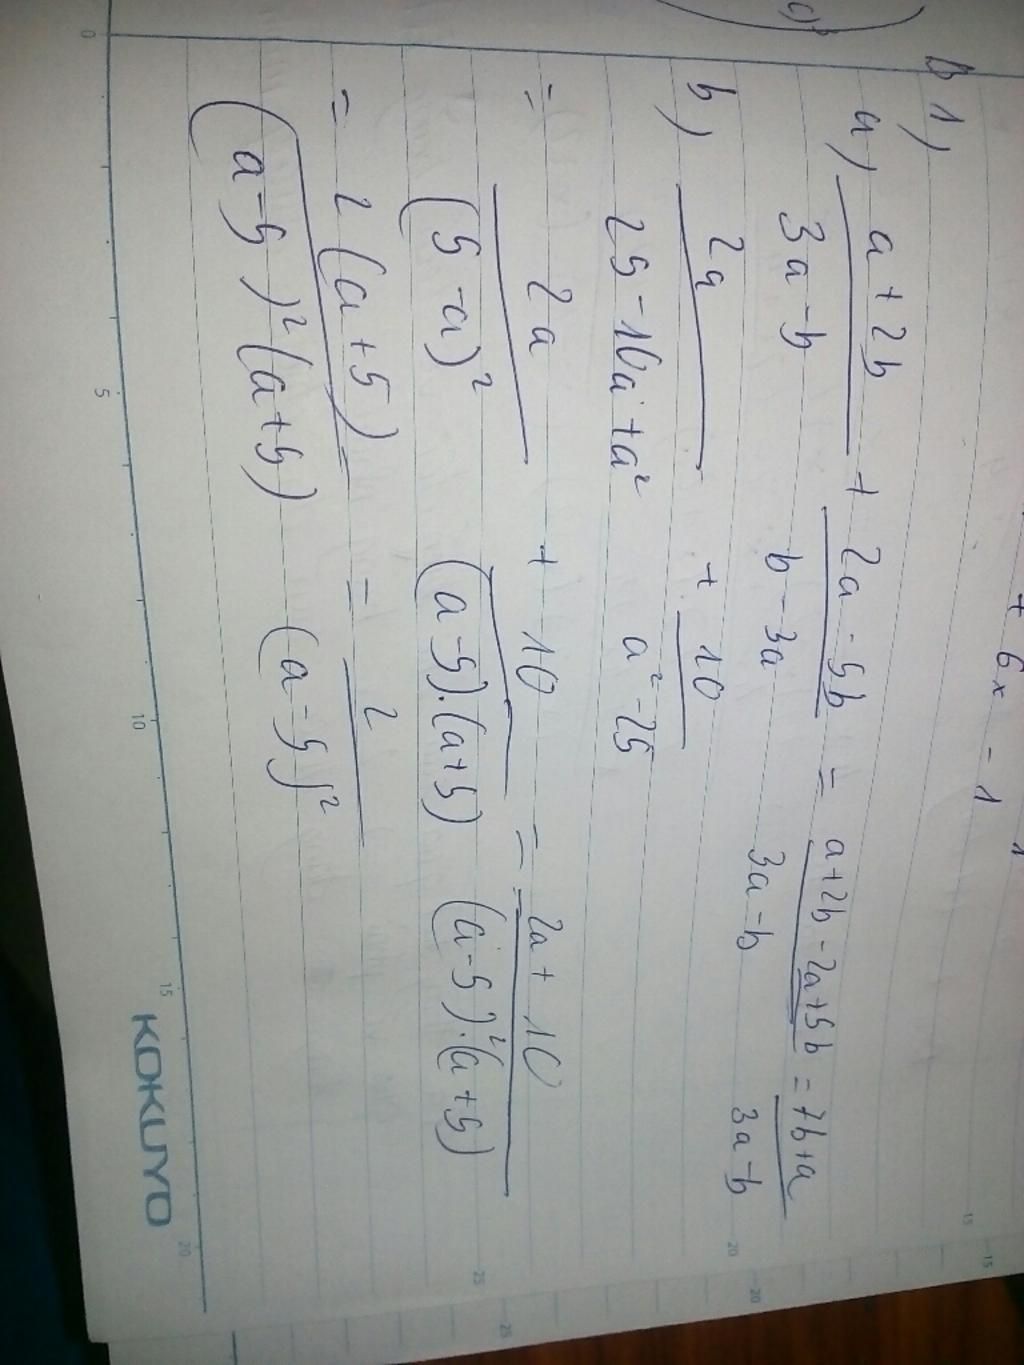 + 6x - 1
1)
a) (a+2b)/(3a-b) + (2a-5b)/(b-3a) = (a+2b-2a+5b)/(3a-b) = (7b+a)/(3a-b)
b) 2a/(25-10a+a²) + 10/(a²-25)
= 2a/(5-a)² + 10/((a-5).(a+5)) = = (2a+10)/((a-5)².(a+5))
= 2(a+5)/((a-5)²(a+5)) = = 2/(a-5)²
c)
0 5 10 15 20
KOKUYO
15 20 25
15 20 25